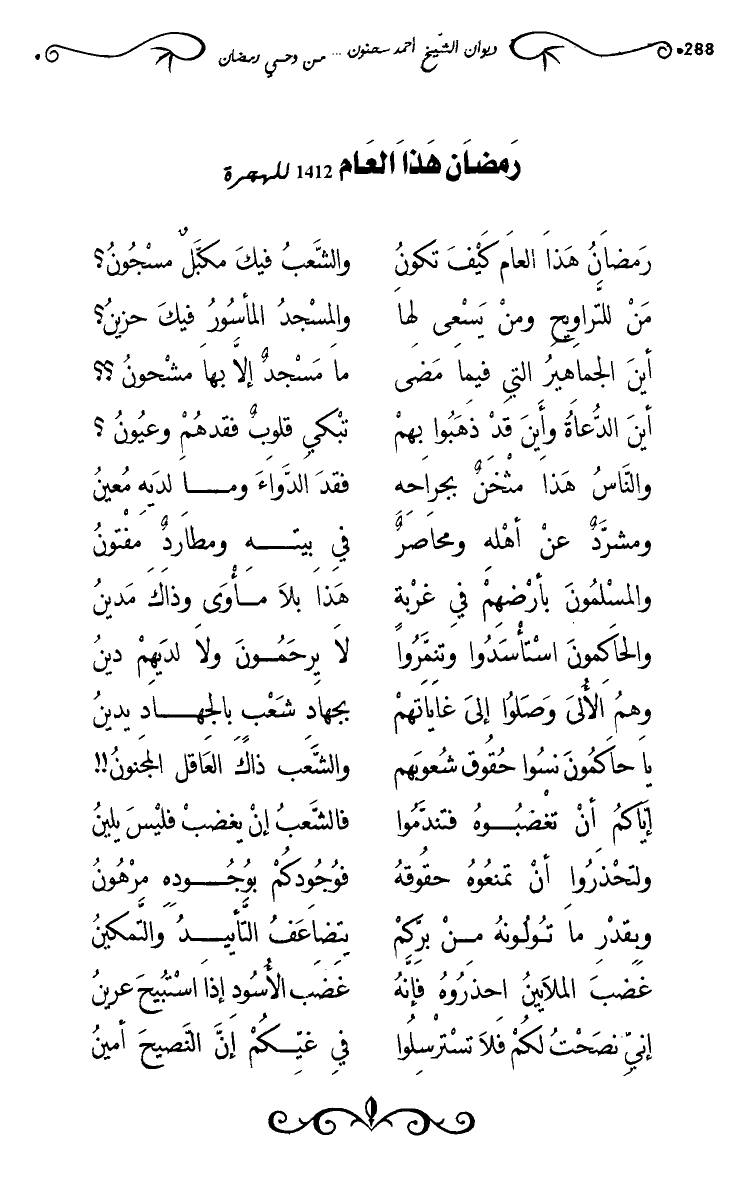 288 ديوان الشّيخ أحمد سحنون ... من وحي رمضان
رَمضاَن هَذاَ العَام 1412 للهجرة
رَمضانُ هَذَا العامِ كَيْفَ تكونُ والشَّعبُ فيكَ مكبَّلٌ مسْجُونُ؟
مَنْ للتَراويحِ ومنْ يَسْعى لها والمِسجدُ المأسُورُ فيكَ حزينُ؟
أينَ الجماهيرُ التي فيما مَضى ما مَسْجدٌ إلاَّ بها مشْحونُ ؟؟
أينَ الدُّعاةُ وأَينَ قَدْ ذهَبُوا بهِمْ تبْكي قلوبٌ فقدهُمْ وعيُونُ ؟
والنَّاسُ هَذا مثْخنٌ بجراحِهِ فقدَ الدَّواءَ ومــا لديَهِ مُعينُ
ومشرَّدٌ عنْ أهْلهِ ومحَاصرٌ في بيتــهِ ومطاردٌ مفْتونُ
والمسْلمُونَ بأرْضهِمْ في غرْبةٍ هَذا بلاَ مــأْوَى وذاكَ مَدينُ
والحاكمونَ اسْتأْسَدُوا وتنمَّرُوا لاَ يرحَمُــونَ ولاَ لديَهِمْ دينُ
وهمُ الأُلىَ وَصَلوُا إلىَ غاياتهمْ بجهادِ شَعْبٍ بالجِهــادِ يدينُ
يا حاكمُونَ نسُوا حُقُوق شُعوبَهم والشَّعب ذاكَ العَاقل المجنونُ!!
إيَّاكمُ أنْ تغْضبُــوهُ فتندَّمُوا فالشَّعبُ إنْ يغضبْ فليْسَ يلينُ
ولتَحْذرُوا أنْ تمنعُوهُ حقُوقهُ فوُجُودكُمْ بوُجُــودهِ مرْهُونُ
وبِقدْر ما تـُولُونهُ مــنْ برَّكمْ يتضاعَفُ التَّأييــدُ والتَّمكينُ
غضبَ الملاَيينُ احذرُوهُ فإنهُ غضَب الأُسُودِ إذَا اسْتبُيحَ عرينُ
إنيّ نصَحْتُ لكُمْ فلاَ تسْترْسِلُوا في غيّـكُمْ إنَّ النَّصيحَ أمينُ